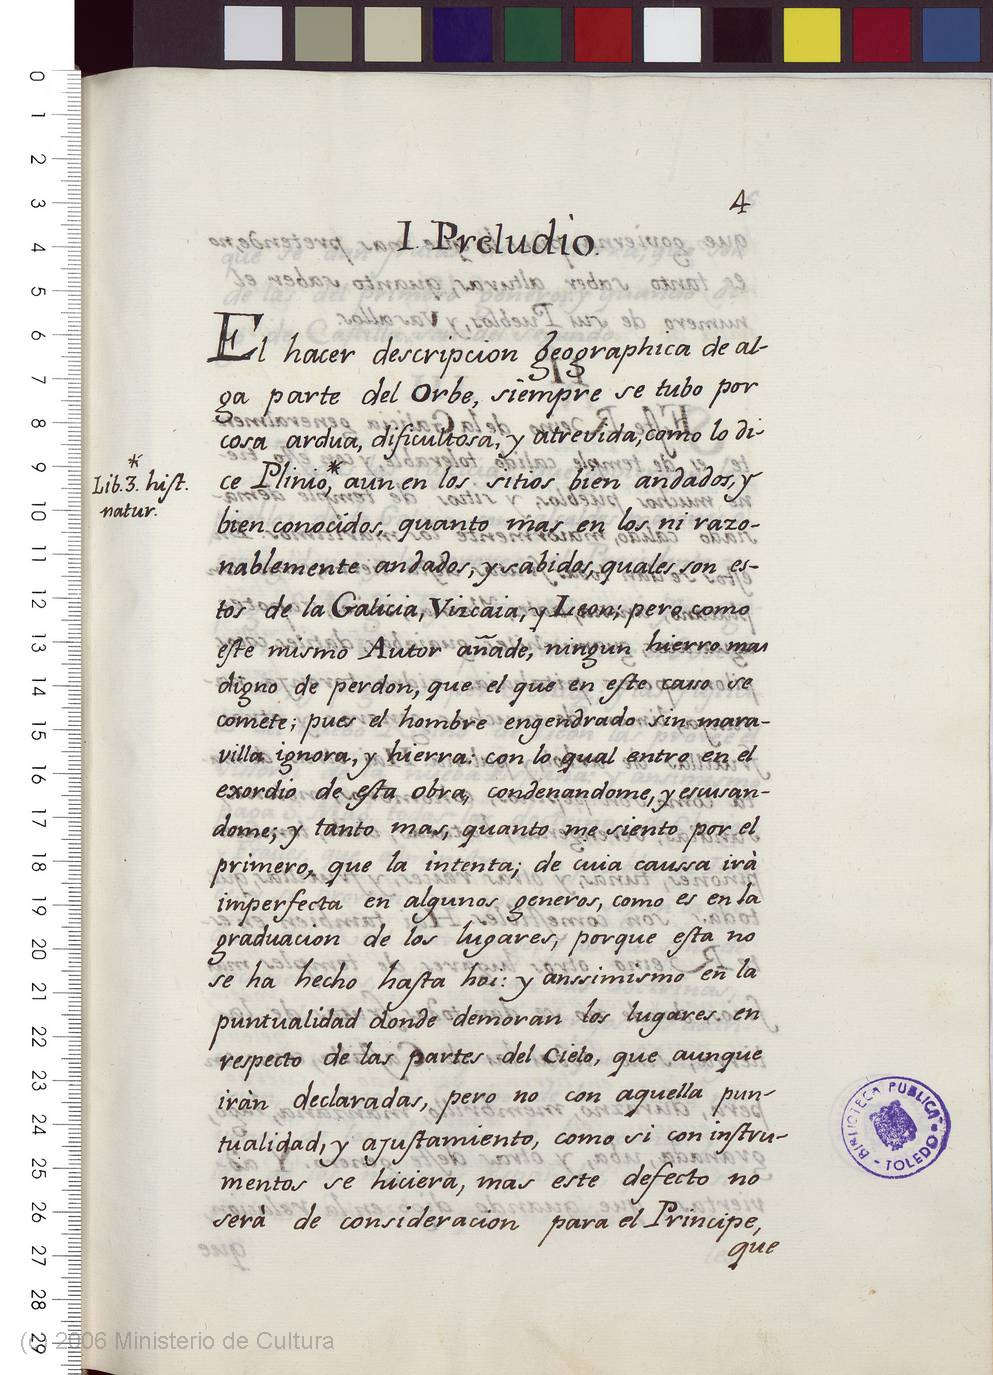 4
I. Preludio.
El hacer descripcion geographica de al-
ga parte del Orbe, siempre se tubo por
cosa ardua, dificultosa, y atrevida, como lo di-
ce Plinio,* aun en los sitios bien andados, y
*
Lib. 3. hist.
natur.
bien conocidos, quanto mas en los ni razo-
nablemente andados, y sabidos, quales son es-
tos de la Galicia, Vizcaia, y Leon; pero como
este mismo Autor añade, ningun hierro mas
digno de perdon, que el que en este caso se
comete; pues el hombre engendrado sin mara-
villa ignora, y hierra: con lo qual entro en el
exordio de esta obra, condenandome, y escusan-
dome; y tanto mas, quanto me siento por el
primero, que la intenta; de cuia caussa irà
imperfecta en algunos generos, como es en la
graduacion de los lugares, porque esta no
se ha hecho hasta hoi: y anssimismo en la
puntualidad donde demoran los lugares en
respecto de las partes del Cielo, que aunque
iràn declaradas, pero no con aquella pun-
tualidad, y ajustamiento, como si con instru-
mentos se hiciera, mas este defecto no
serà de consideracion para el Principe,
que
BIBLIOTECA PUBLICA - TOLEDO
0
1
2
3
4
5
6
7
8
9
10
11
12
13
14
15
16
17
18
19
20
21
22
23
24
25
26
27
28
29
(c) 2006 Ministerio de Cultura